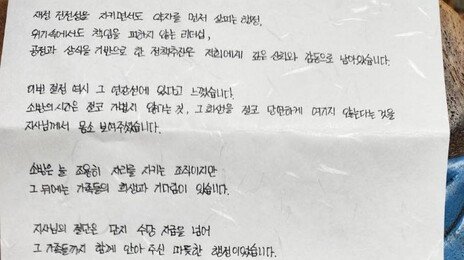 재정 건전성을 지키면서도 약자를 먼저 살피는 행정,
위기속에서도 책임을 피하지 않는 리더십,
공정과 상식을 기반으로 한 정책추진은 저희에게 깊은 신뢰와 감동으로 남아있습니다.
이번 결정 역시 그 연장선에 있다고 느꼈습니다.
소방의 시간은 결코 가볍지 않다는 것, 그 헌신을 결코 당연하게 여기지 않는다는 것을
지사님께서 몸소 보여주셨습니다.
소방은 늘 조용히 자리를 지키는 조직이지만
그 뒤에는 가족들의 희생과 기다림이 있습니다.
지사님의 결단은 단지 수당 지급을 넘어
그 가족들까지 함께 안아 주신 따뜻한 행정이었습니다.